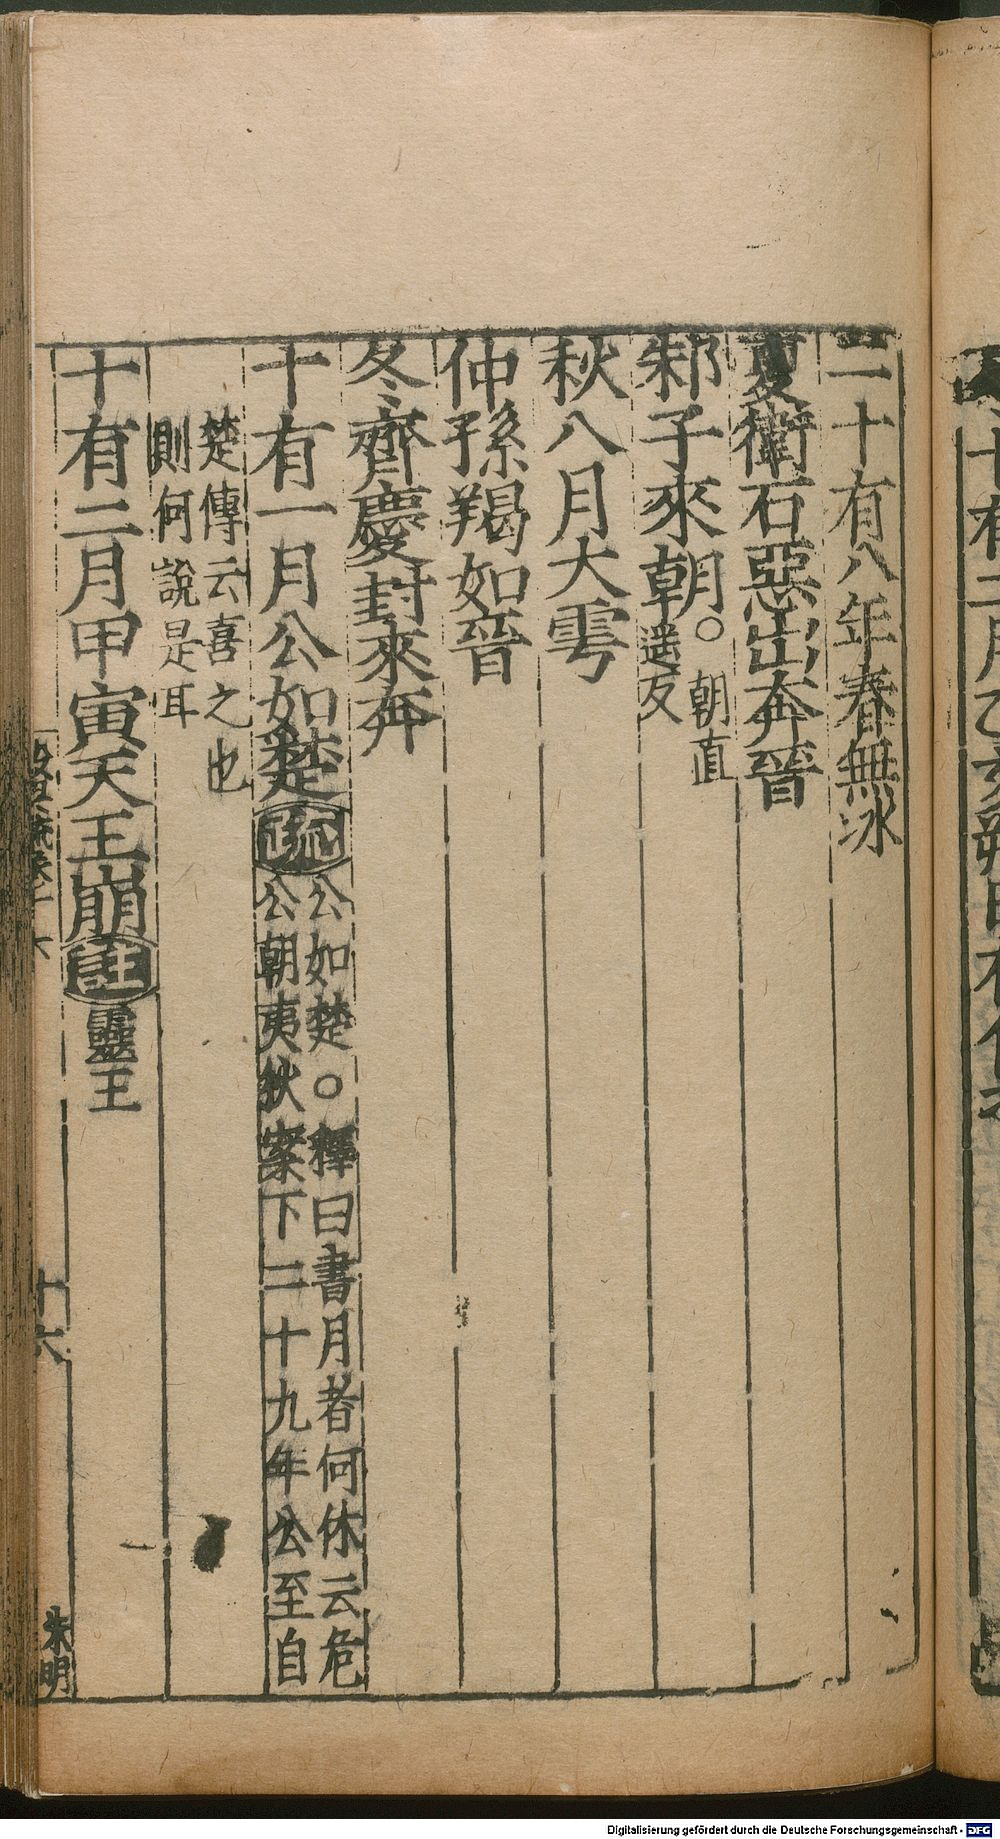 二十有八年春無冰
夏衛石惡出奔晉
邾子來朝○朝直遥反
秋八月大雩
仲孫羯如晉
冬齊慶封來奔
十有一月公如楚疏公如楚○釋曰書月者何休云危公朝夷狄案下二十九年公至自
楚傳云喜之也則何說是耳
十有二月甲寅天王崩註靈王
十六
朱明
Digitalisierung gefördert durch die Deutsche Forschungsgemeinschaft - DFG